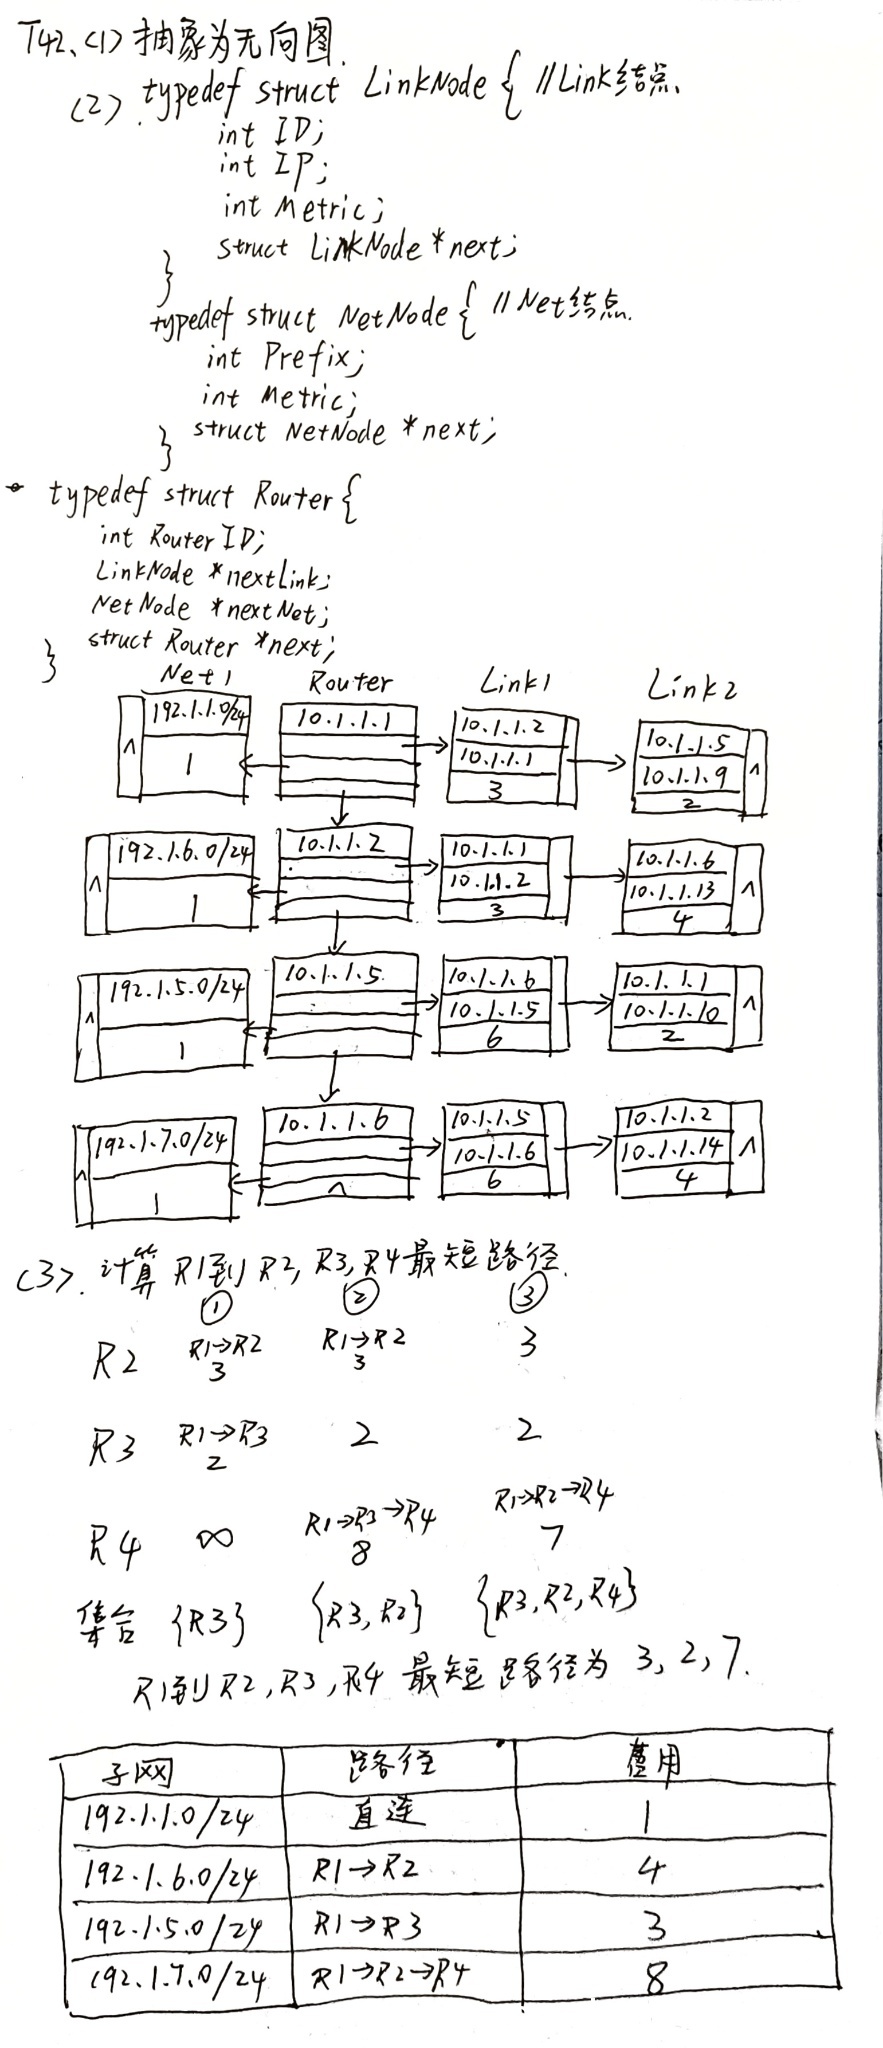 T42、(1) 抽象为无向图.
(2). typedef struct LinkNode { //Link结点、
int ID;
int IP;
int Metric;
struct LinkNode *next;
}
typedef struct NetNode { //Net结点.
int Prefix;
int Metric;
struct NetNode *next;
}
typedef struct Router {
int RouterID;
LinkNode *nextLink;
NetNode *nextNet;
struct Router *next;
}
Net1 Router Link1 Link2
192.1.1.0/24 10.1.1.1 10.1.1.2 10.1.1.5
∧ 1 10.1.1.1 10.1.1.9 ∧
3 2
192.1.6.0/24 10.1.1.2 10.1.1.1 10.1.1.6
∧ 1 10.1.1.2 10.1.1.13 ∧
3 4
192.1.5.0/24 10.1.1.5 10.1.1.6 10.1.1.1
∧ 1 10.1.1.5 10.1.1.10 ∧
6 2
192.1.7.0/24 10.1.1.6 10.1.1.5 10.1.1.2
∧ 1 ∧ 10.1.1.6 10.1.1.14 ∧
6 4
(3). 计算 R1到 R2, R3, R4 最短路径.
① ② ③
R2 R1→R2 R1→R2 3
3 3
R3 R1→R3 2 2
2
R4 ∞ R1→R3→R4 R1→R2→R4
8 7
集合 {R3} {R3, R2} {R3, R2, R4}
R1到 R2, R3, R4 最短路径为 3, 2, 7.
子网 路径 费用
192.1.1.0/24 直连 1
192.1.6.0/24 R1→R2 4
192.1.5.0/24 R1→R3 3
192.1.7.0/24 R1→R2→R4 8